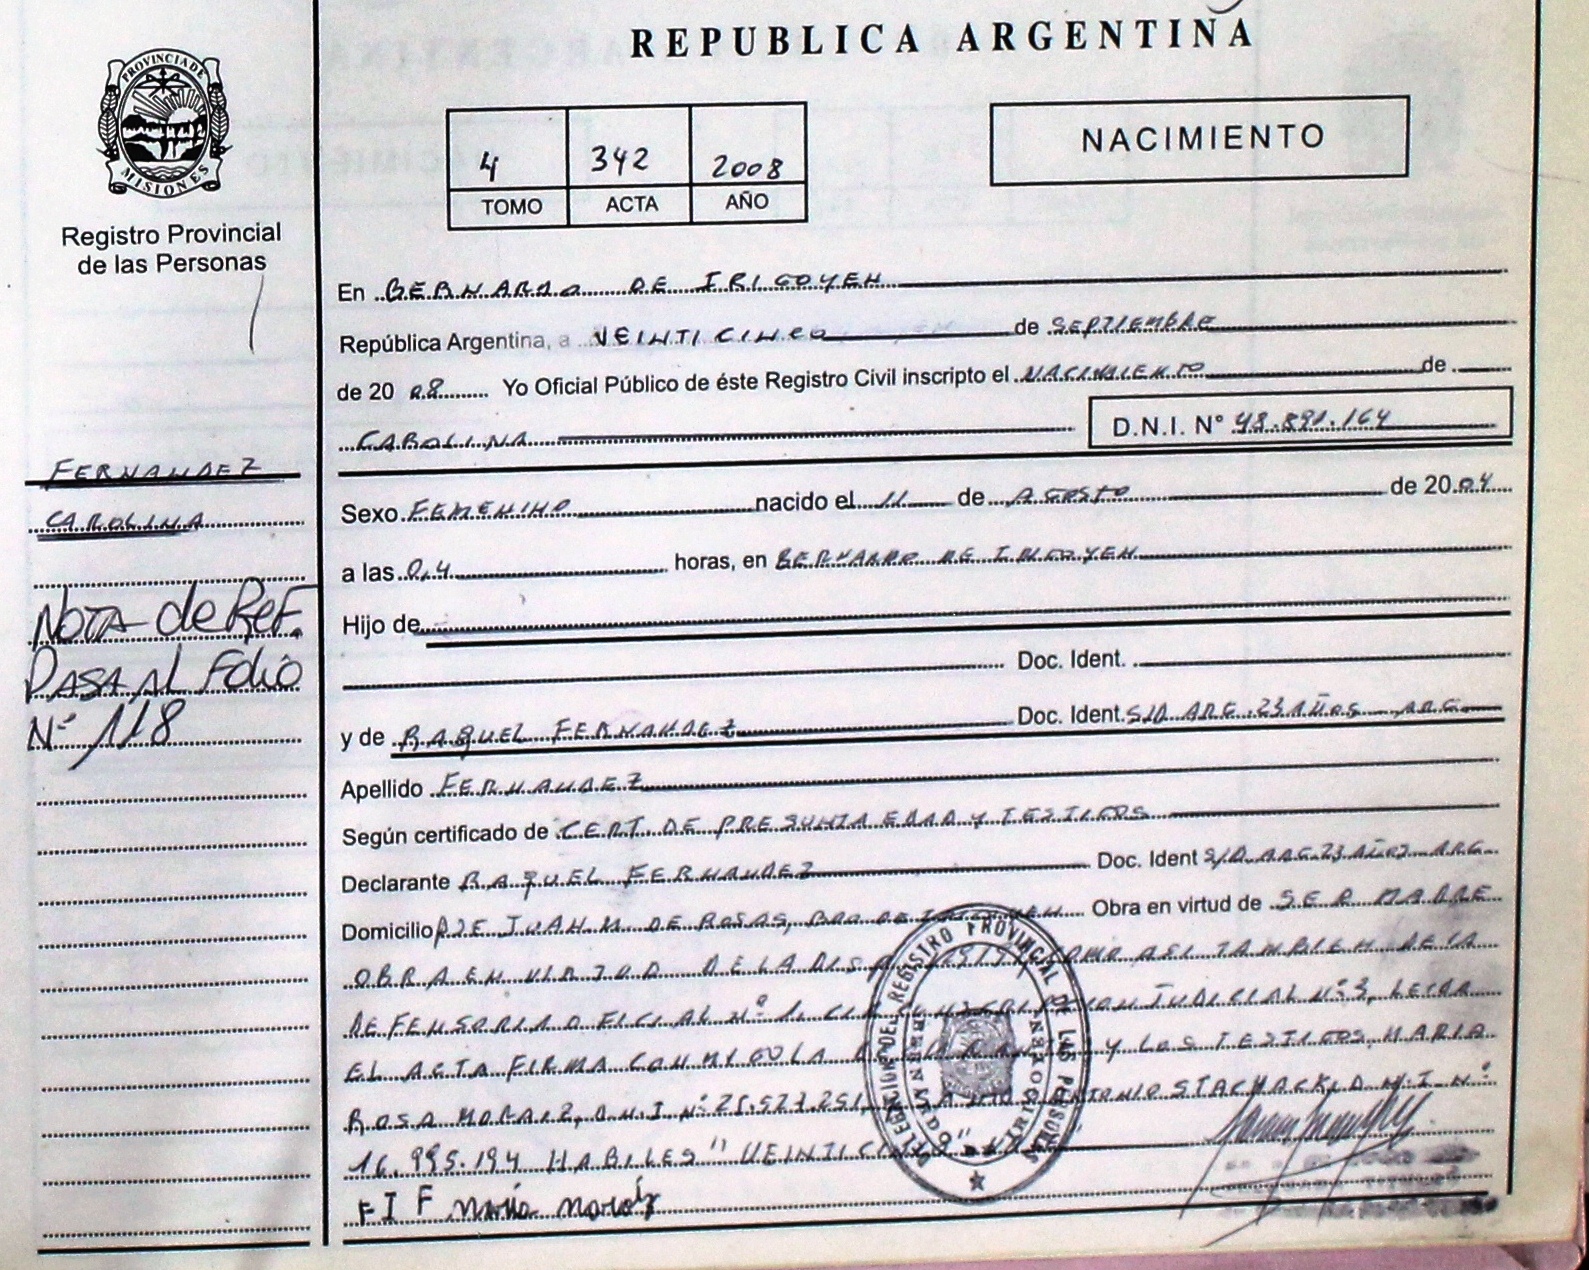 REPUBLICA ARGENTINA
PROVINCIA DE
MISIONES
Registro Provincial
de las Personas
4 342 2008
TOMO ACTA AÑO
NACIMIENTO
En BERNARDO DE IRIGOYEN
República Argentina, a VEINTICINCO de SEPTIEMBRE
de 20 08 Yo Oficial Público de éste Registro Civil inscripto el NACIMIENTO de
CAROLINA D.N.I. N° 48.891.164
FERNANDEZ
CAROLINA
NOTA de REF.
PASA AL Folio
Nº 118
Sexo FEMENINO nacido el 11 de AGOSTO de 20 04
a las 04 horas, en BERNARDO DE IRIGOYEN
Hijo de
Doc. Ident.
y de RAQUEL FERNANDEZ Doc. Ident. S/D ARG. 23 AÑOS ARG
Apellido FERNANDEZ
Según certificado de CERT. DE PRESUNTA EDAD Y TESTIGOS
Declarante RAQUEL FERNANDEZ Doc. Ident S/D ARG. 23 AÑOS ARG.
Domicilio JUAN M. DE ROSAS, BDO DE IRIGOYEN Obra en virtud de SER MADRE
OBRA EN VIRTUD DE LA COMO ASI TAMBIEN DE LA
DEFENSORIA OFICIAL Nº 1, CIRCUNSCRIPCION JUDICIAL Nº 3, LEIDA
EL ACTA FIRMA CONMIGO LA Y LOS TESTIGOS MARIA
ROSA MORAIZ, D.N.I Nº 25.527.251, ANTONIO STACHACK D.N.I Nº
16.995.194 HABILES "VEINTICINCO"
F I F María Moraiz
DELEGACION DEL REGISTRO PROVINCIAL DE LAS PERSONAS
BERNARDO DE IRIGOYEN